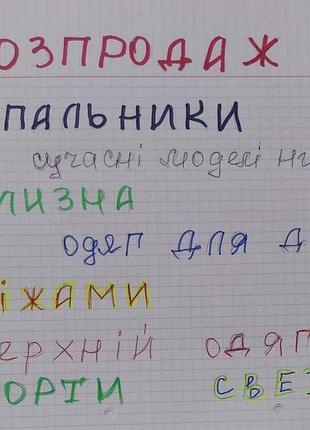 ОЗПРОДАЖ
ПАЛЬНИКИ
сучасні моделі
ИЗНА
ОДЯГ ДЛЯ Д
ІЖАМИ
ЕРХНІЙ ОДЯГ
ОРТИ СВЕ